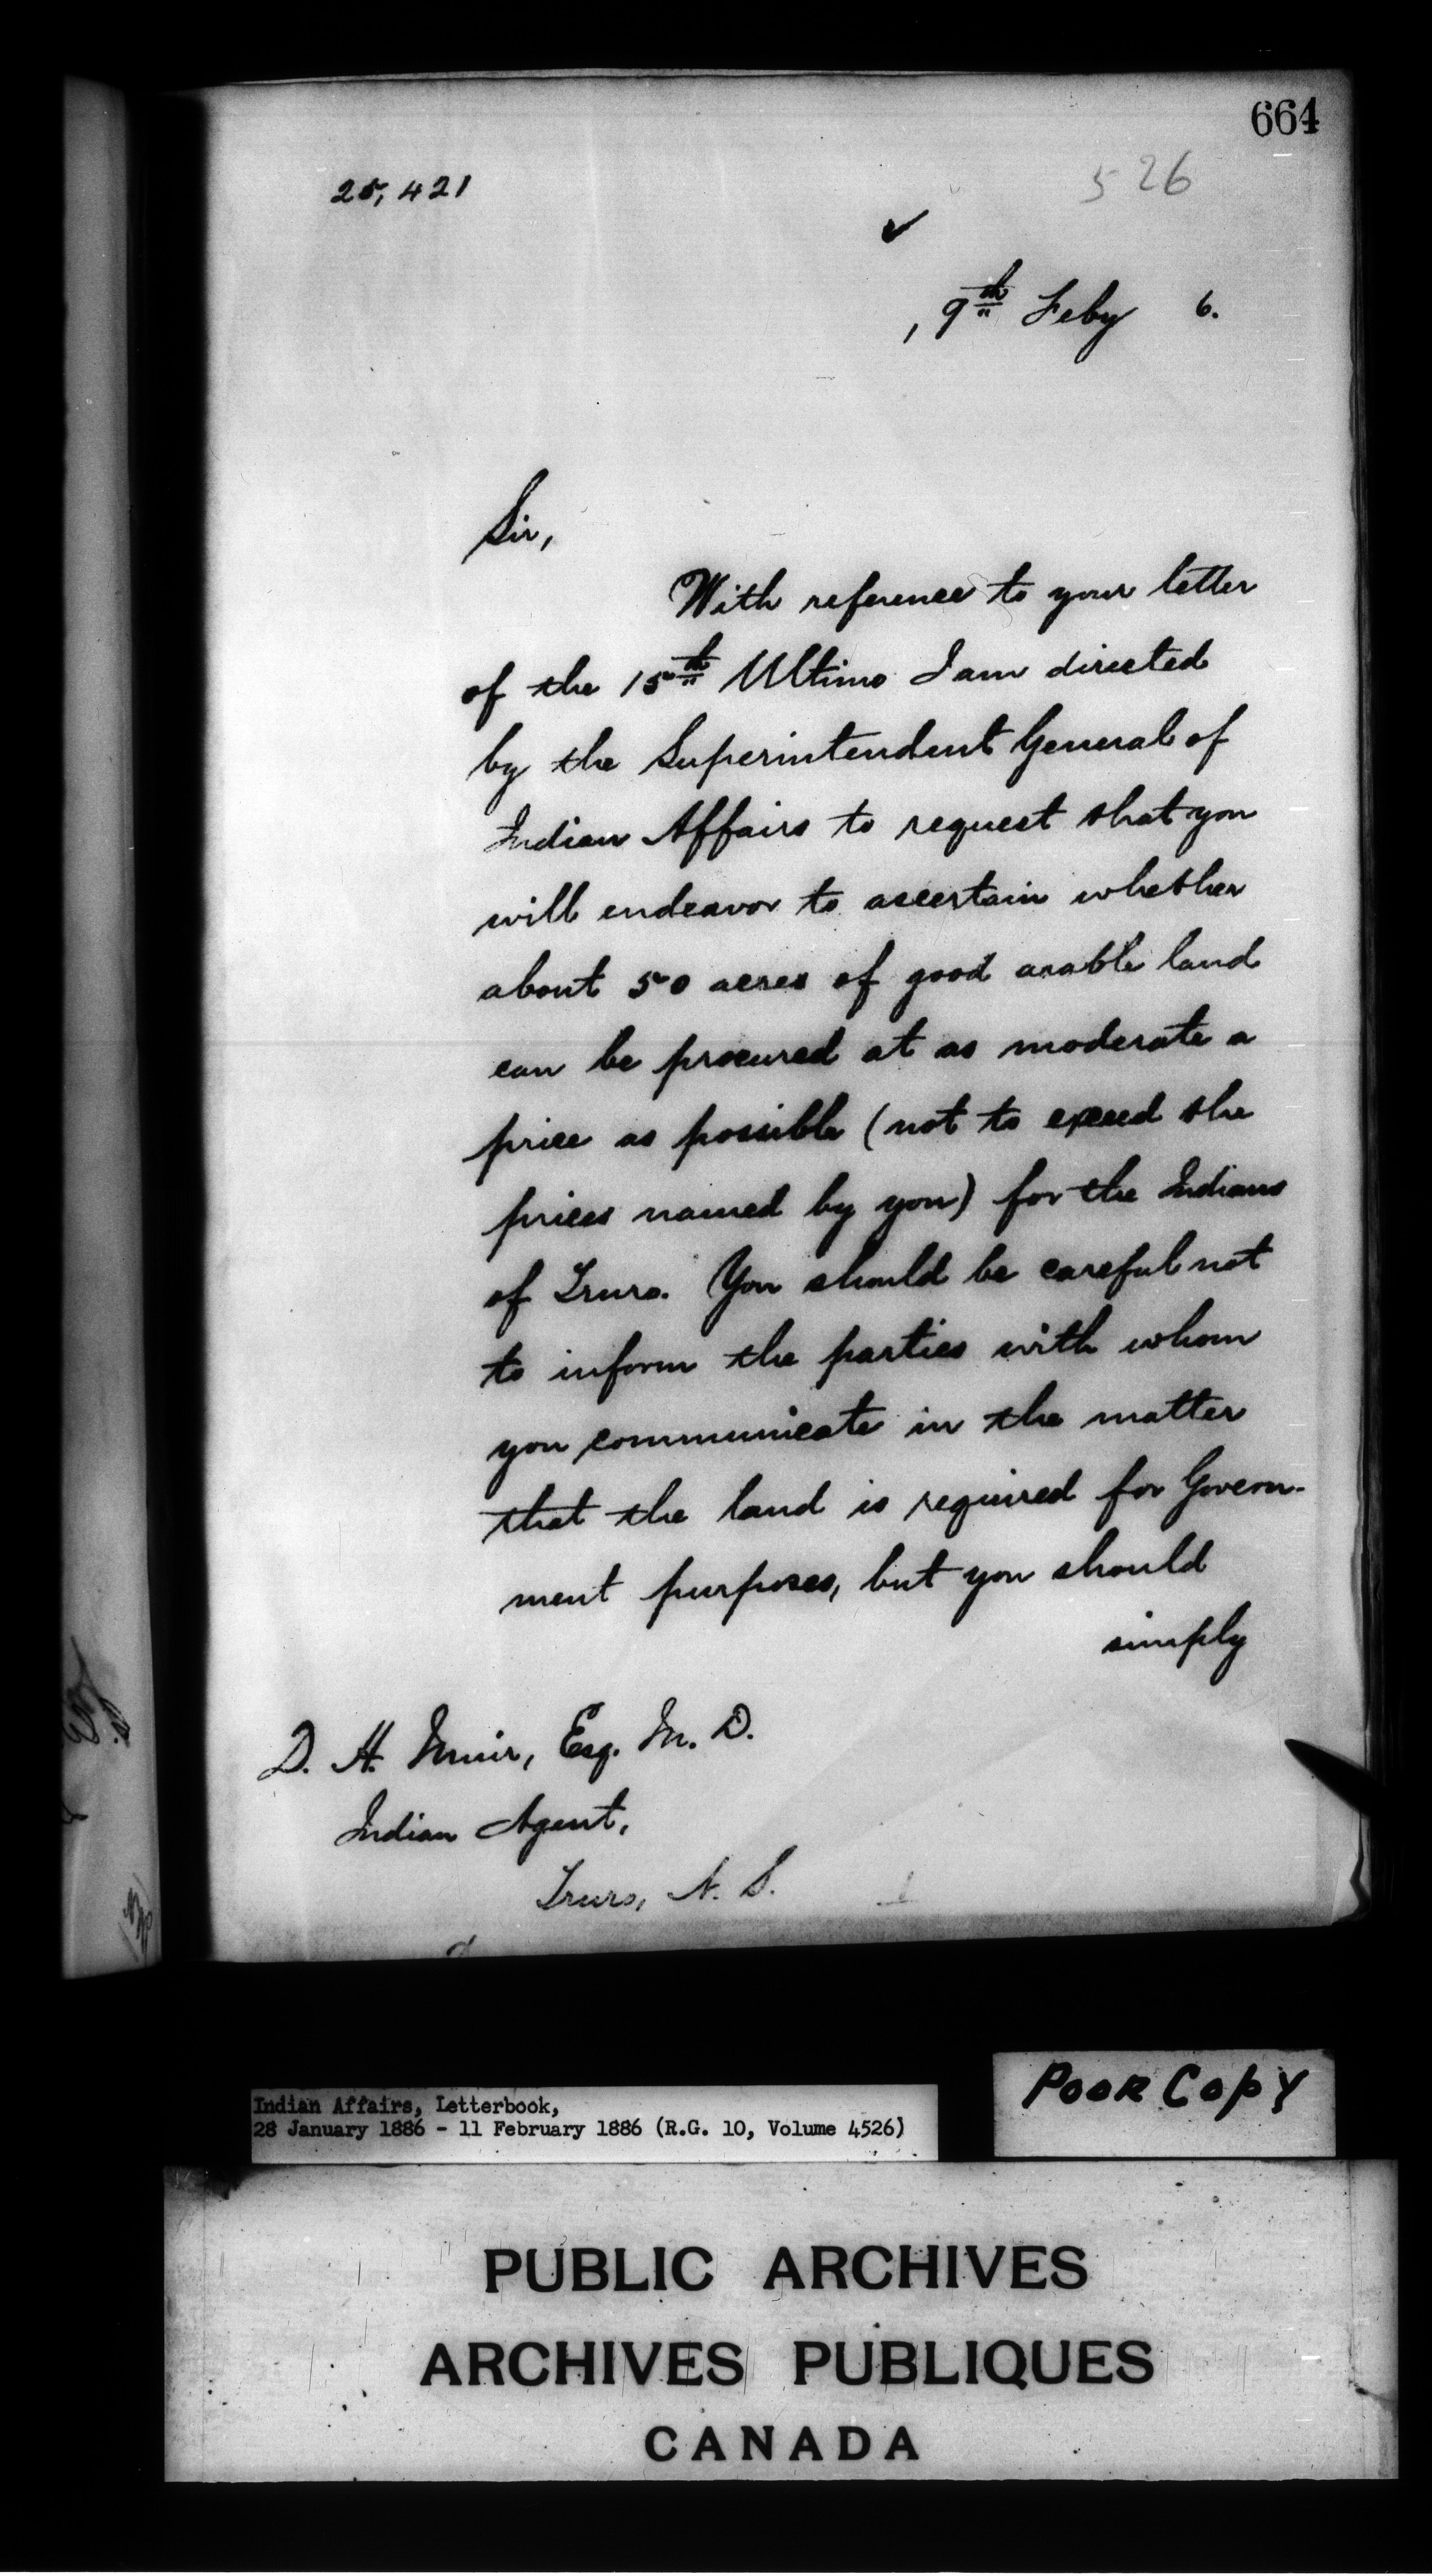 664
526
25,421
✓
, 9th Feby 6.
Sir,
With reference to your letter
of the 15th Ultimo I am directed
by the Superintendent General of
Indian Affairs to request that you
will endeavor to ascertain whether
about 50 acres of good arable land
can be procured at as moderate a
price as possible (not to exceed the
prices named by you) for the Indians
of Truro. You should be careful not
to inform the parties with whom
you communicate in the matter
that the land is required for Govern-
ment purposes, but you should
simply
D. H. Muir, Esq. M. D.
Indian Agent,
Truro, N. S.
Poor Copy
Indian Affairs, Letterbook,
28 January 1886 - 11 February 1886 (R.G. 10, Volume 4526)
PUBLIC ARCHIVES
ARCHIVES PUBLIQUES
CANADA